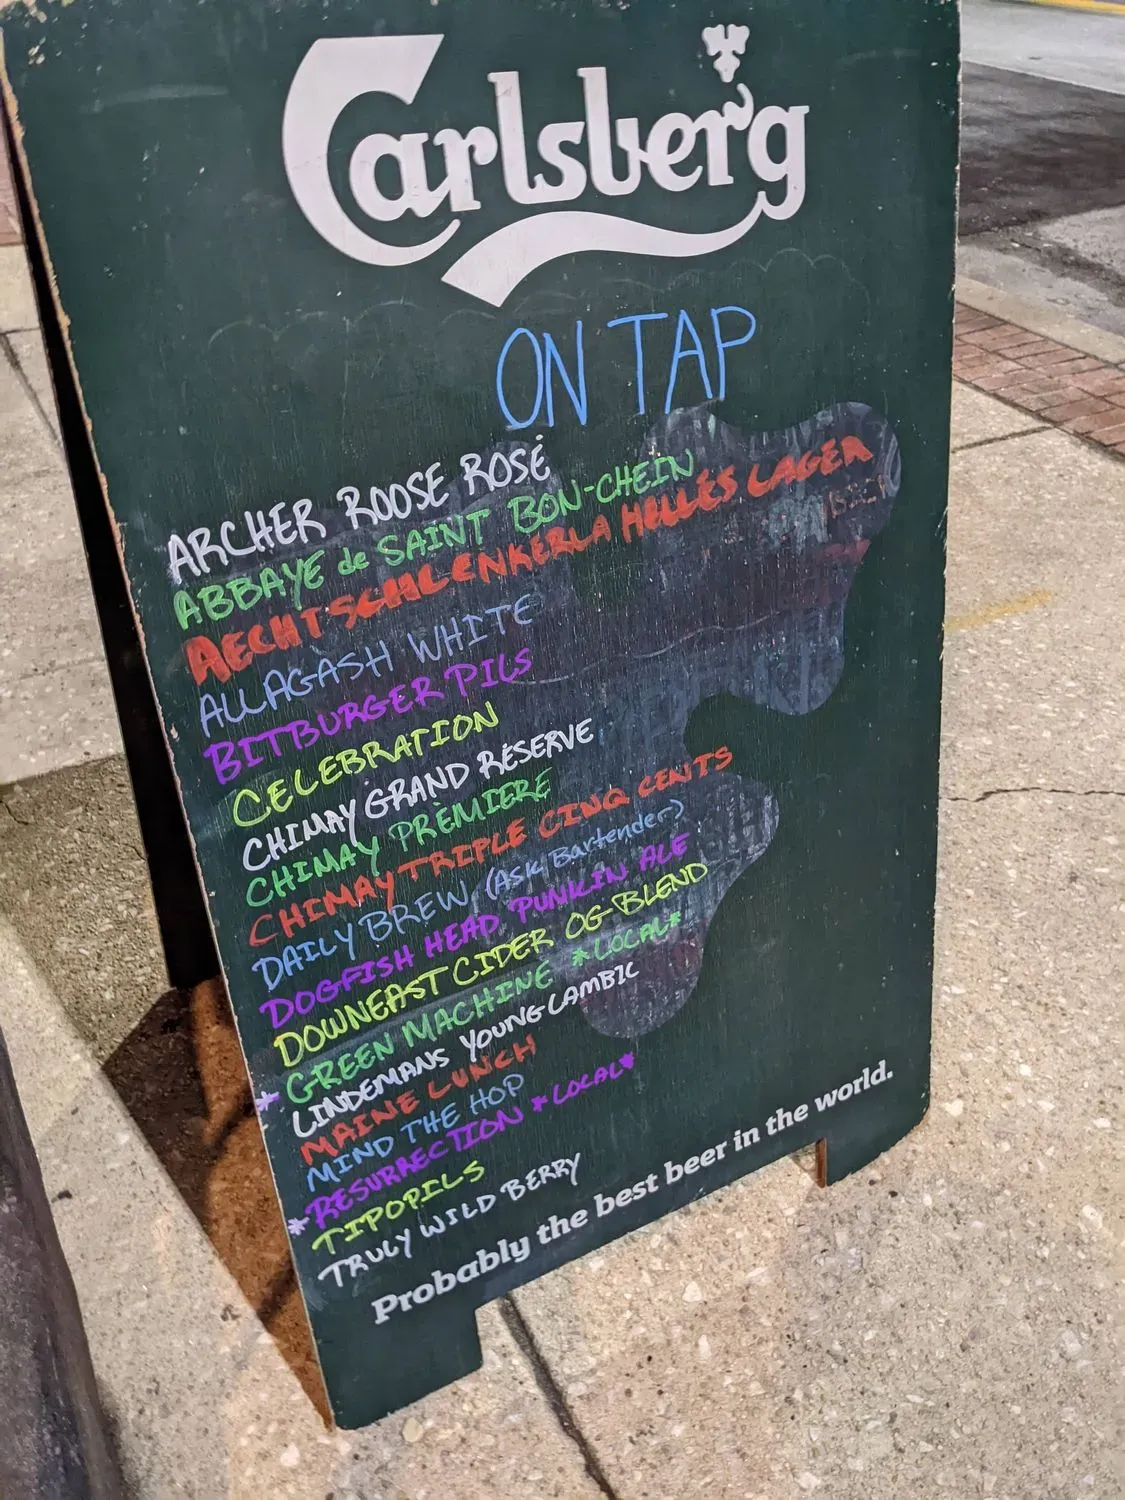 Carlsberg
ON TAP
ARCHER ROOSE ROSÉ
ABBAYE de SAINT BON-CHEIN
AECHT SCHLENKERLA HELLES LAGER
ALLAGASH WHITE
BITBURGER PILS
CELEBRATION
CHIMAY GRAND RÉSERVE
CHIMAY PRÈMIERE
CHIMAY TRIPLE CINQ CENTS
DAILY BREW (Ask Bartender)
DOGFISH HEAD PUNKIN ALE
DOWNEAST CIDER OG BLEND
* GREEN MACHINE *LOCAL*
LINDEMANS YOUNG LAMBIC
MAINE LUNCH
MIND THE HOP
* RESURRECTION *LOCAL*
TIPOPILS
TRULY WILD BERRY
Probably the best beer in the world.